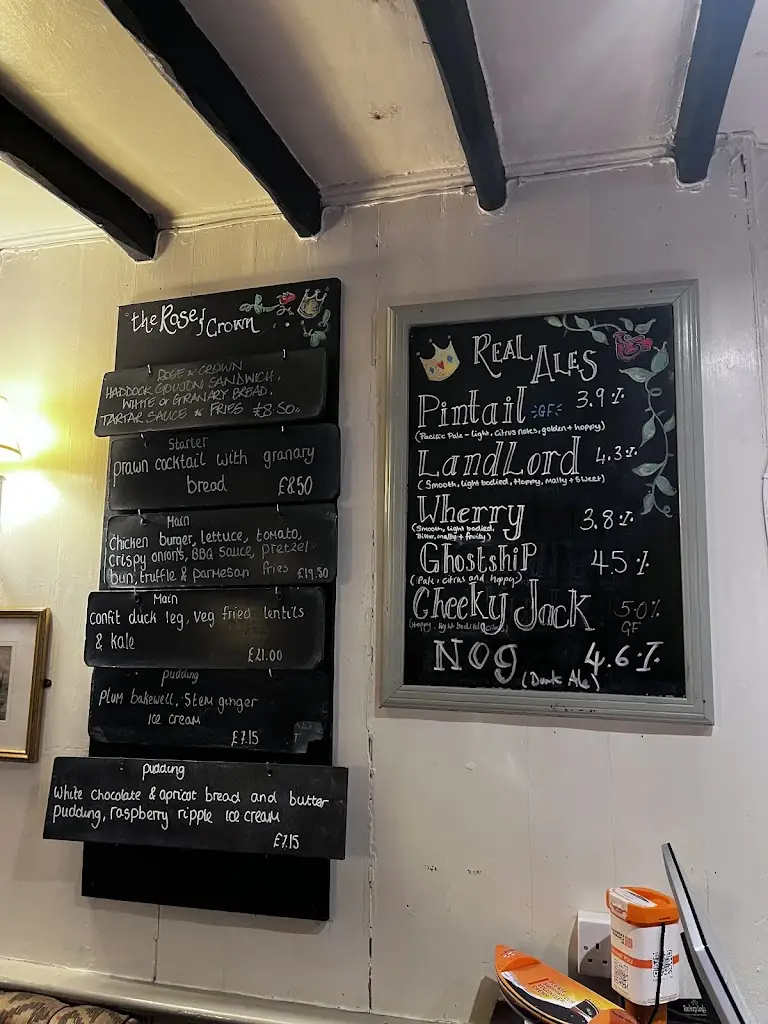 the Rose & Crown
ROSE & CROWN
HADDOCK GOUJON SANDWICH,
WHITE or GRANARY BREAD.
TARTAR SAUCE & FRIES £8.50
Starter
prawn cocktail with granary
bread £8.50
Main
Chicken burger, lettuce, tomato,
crispy onions, BBQ sauce, pretzel
bun, truffle & parmesan fries £19.50
Main
Confit duck leg, veg fried lentils
& kale
£21.00
pudding
Plum bakewell, Stem ginger
ice cream
£7.15
pudding
White chocolate & apricot bread and butter
pudding, raspberry ripple ice cream
£7.15
REAL ALES
Pintail GF 3.9%
(Pacific Pale - light, citrus notes, golden + hoppy)
LandLord 4.3%
(Smooth, light bodied, Hoppy, Malty + Sweet)
Wherry 3.8%
(Smooth, light bodied,
Bitter, malty + fruity)
Ghostship 4.5%
(Pale, citrus and hoppy)
Cheeky Jack 5.0%
GF
Nog 4.6%
(Dark Ale)